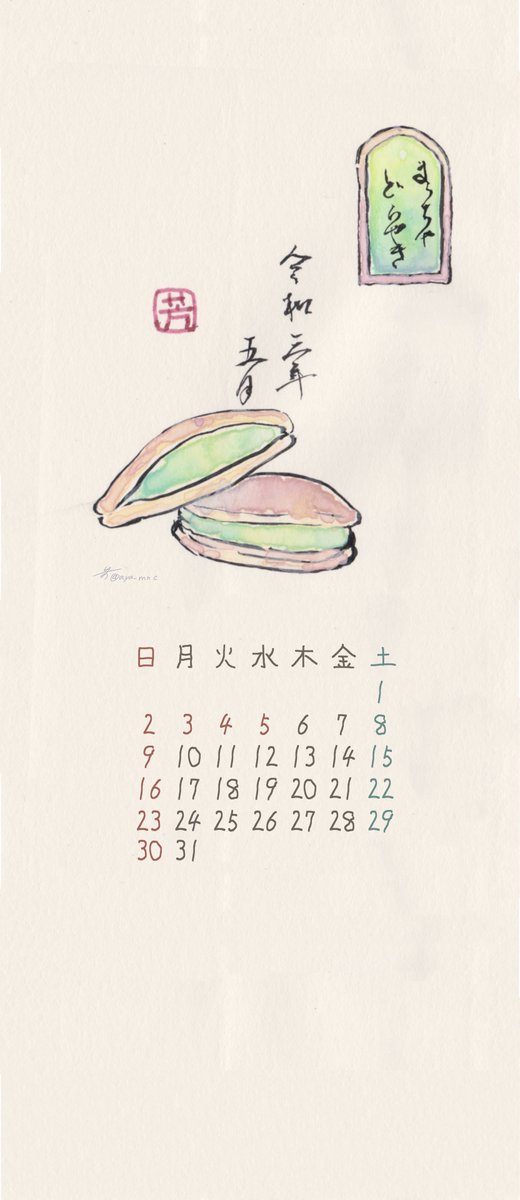 まっちゃ
どらやき
令和三年
五月
芳
芳@aya_mnc
日 月 火 水 木 金 土
1
2 3 4 5 6 7 8
9 10 11 12 13 14 15
16 17 18 19 20 21 22
23 24 25 26 27 28 29
30 31